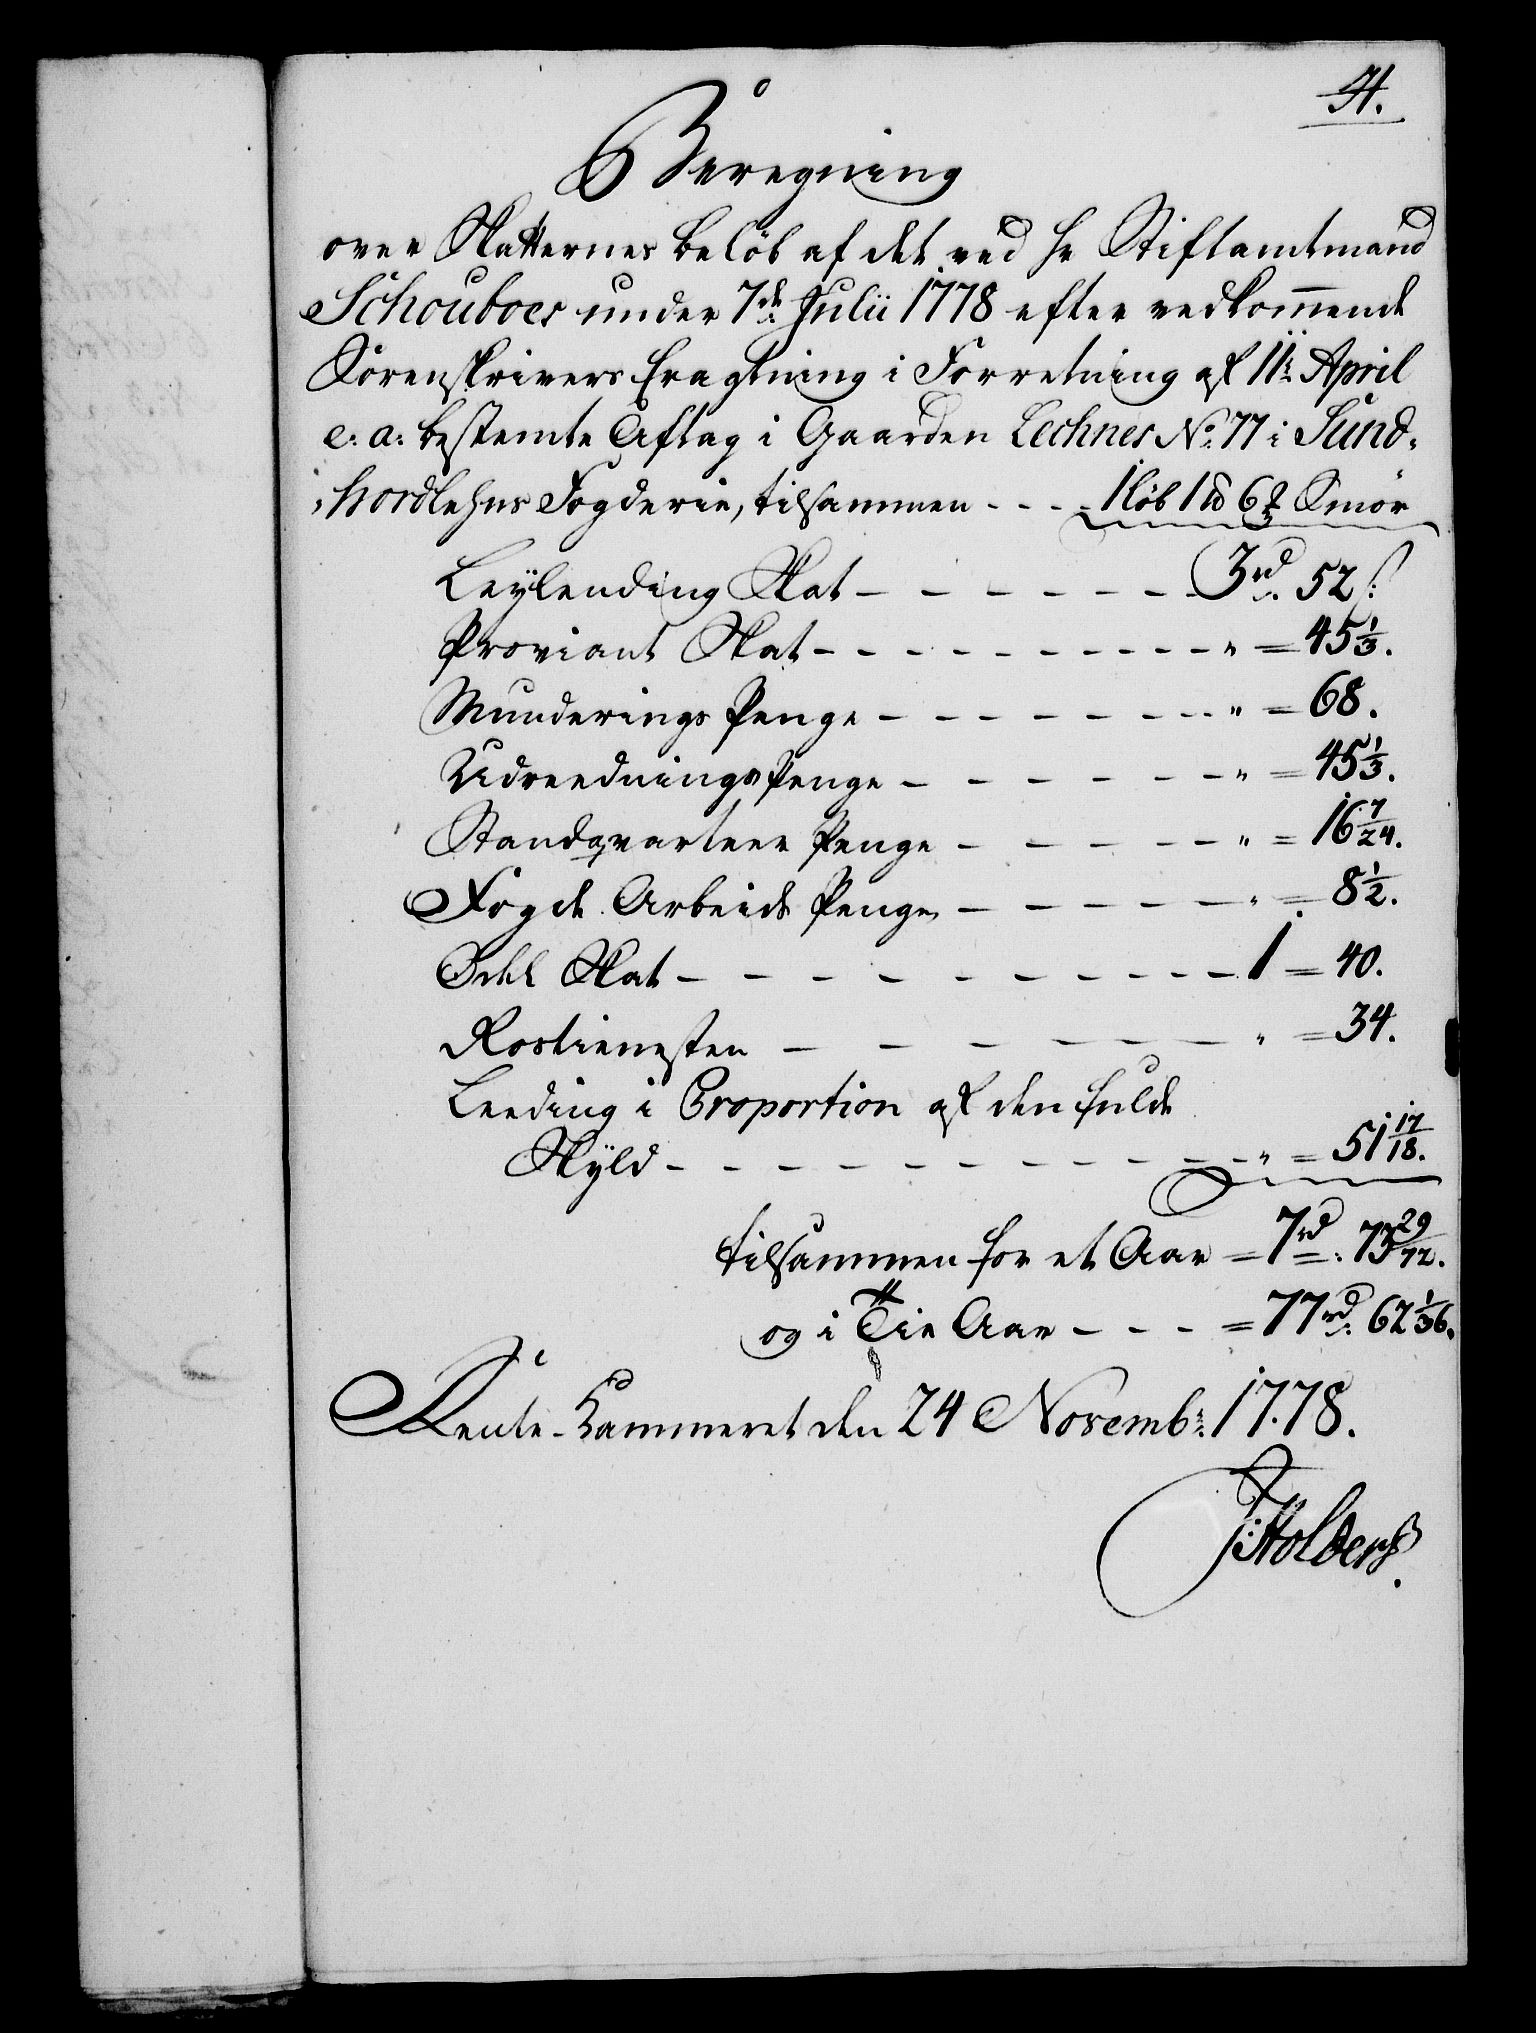 H.
Beregning
over Skatternes beløb af det ved Hr Stiftamtmand
Schouboes under 7de Julii 1778 efter vedkom̄ende
Sorenskrivers Eragtning i Forretning af 11te April
e: a: bestemte Aftag i Gaarden Lechnes No. 77 i Sund-
-hordlehns Fogderie, tilsammen - - - 1 Løb 1 ℔ 6 ℔ Smør
Leylending Skat - - - - - - 3 rd. 52 ß:
Proviant Skat - - - - - - - - - - " = 45 1/3.
Munderings Penge - - - - - - - " = 68.
Udreednings Penge - - - - - - " = 45 1/3.
Standqvarteer Penge - - - - - " = 16 7/24.
Fogde Arbeids Penge - - - - - " = 8 1/2.
Odel Skat - - - - - - - - - - 1 = 40.
Rostienesten - - - - - - - " = 34.
Leeding i Proportion af den fulde
Skyld - - - - - - - - - - " = 51 17/18.
tilsammen for et Aar = 7 rd: 73 29/72.
og i Tie Aar - - - = 77 rd: 62 1/36.
Rente-Kammeret den 24 Novembr: 1778.